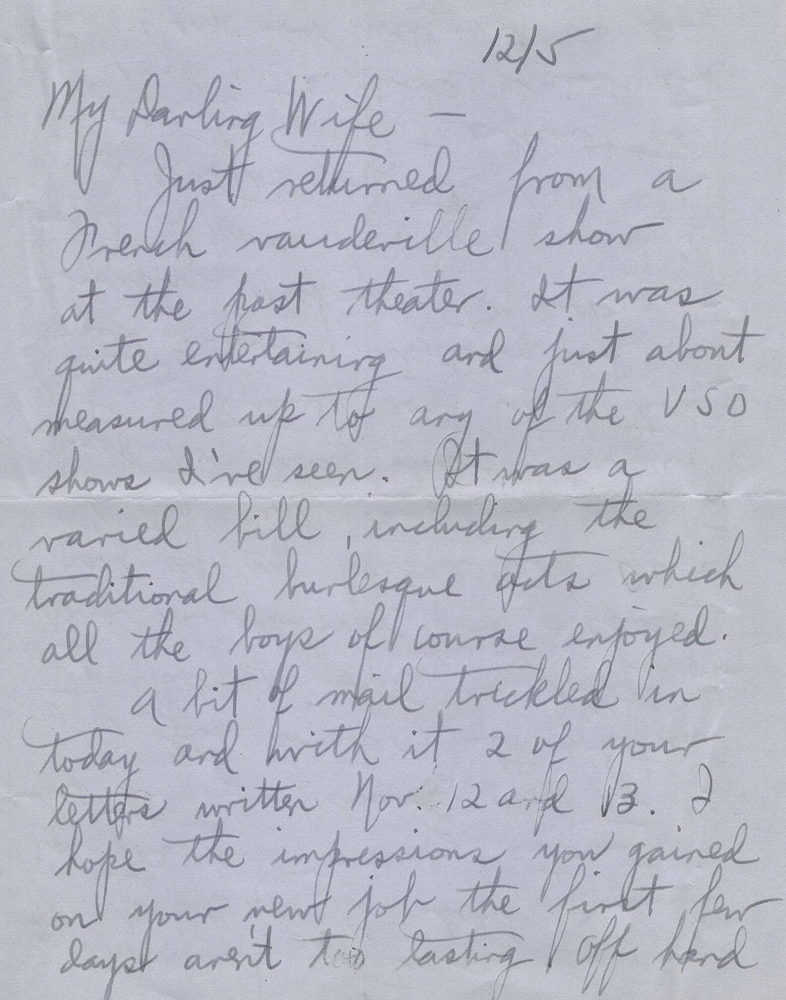 12/5
My Darling Wife —
Just returned from a
French vaudeville show
at the post theater. It was
quite entertaining and just about
measured up to any of the USO
shows I've seen. It was a
varied bill, including the
traditional burlesque acts which
all the boys of course enjoyed.
A bit of mail trickled in
today and with it 2 of your
letters written Nov. 12 and 13. I
hope the impressions you gained
on your new job the first few
days aren't too lasting. Off hand